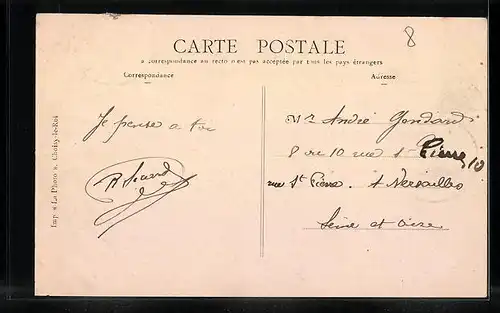 8
CARTE POSTALE
a correspondance au recto n'est pas acceptée par tous les pays étrangers
Correspondance
Adresse
Je pense a toi
Mr André Gondard
8 ou 10 rue St Pierre 10
rue St Pierre. A Versailles
Seine et Oise
Imp. « La Photo », Choisy-le-Roi